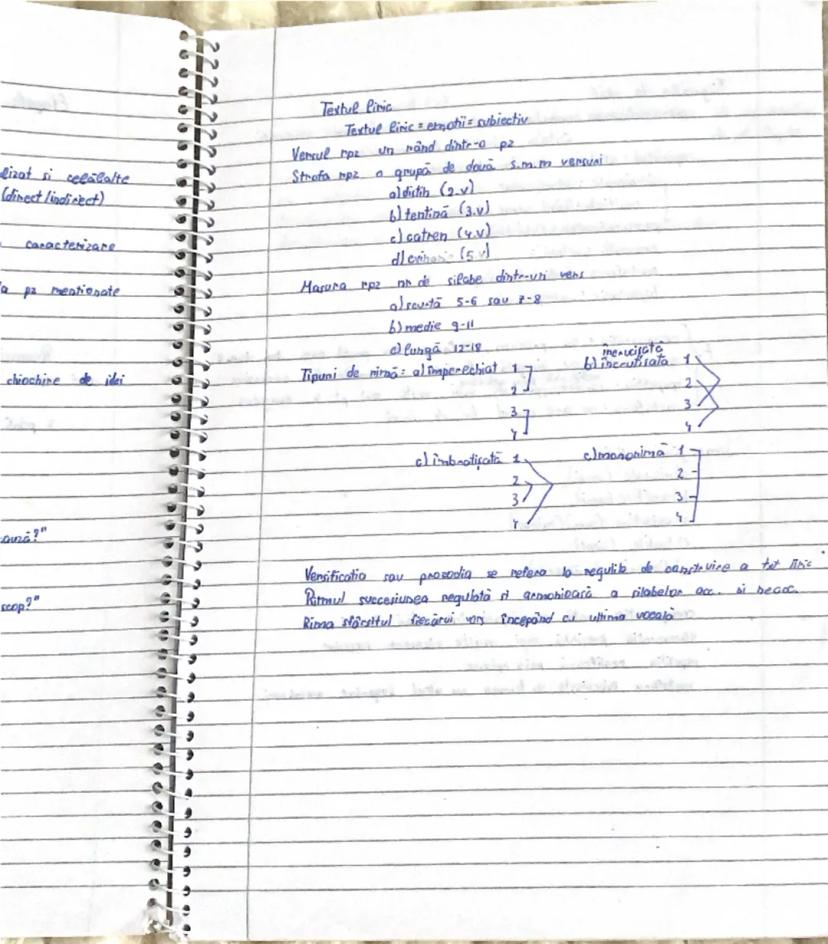 lizat si celălalte
(direct/indirect)
caracterizare
pz mentionate
chiochine de idei
scop?"
Textul liric
Textul liric = emotii = subiectiv
Versul rpz un rând dintr-o pz
Strofa rpz o grupă de două s.m.m versuri
a) distih (2.v)
b) tertină (3.v)
c) catren (4.v)
d) (5.v)
Masura rpz nr. de silabe dintr-un vers
a) scurtă 5-6 sau 7-8
b) medie 9-11
c) lungă 12-18
Tipuri de rimă: a) imperechiat 1 2 3 4
încrucișată
b) 1 2 3 4
c) îmbratișată 1 2 3 4
c) monorimă 1 2 3 4
Versificatia sau prosodia se refera la regulile de construire a txt liric
Ritmul succesiunea regulată si armonioasă a silabelor acc. si neacc.
Rima sfârsitul fiecărui vers începând cu ultima vocală